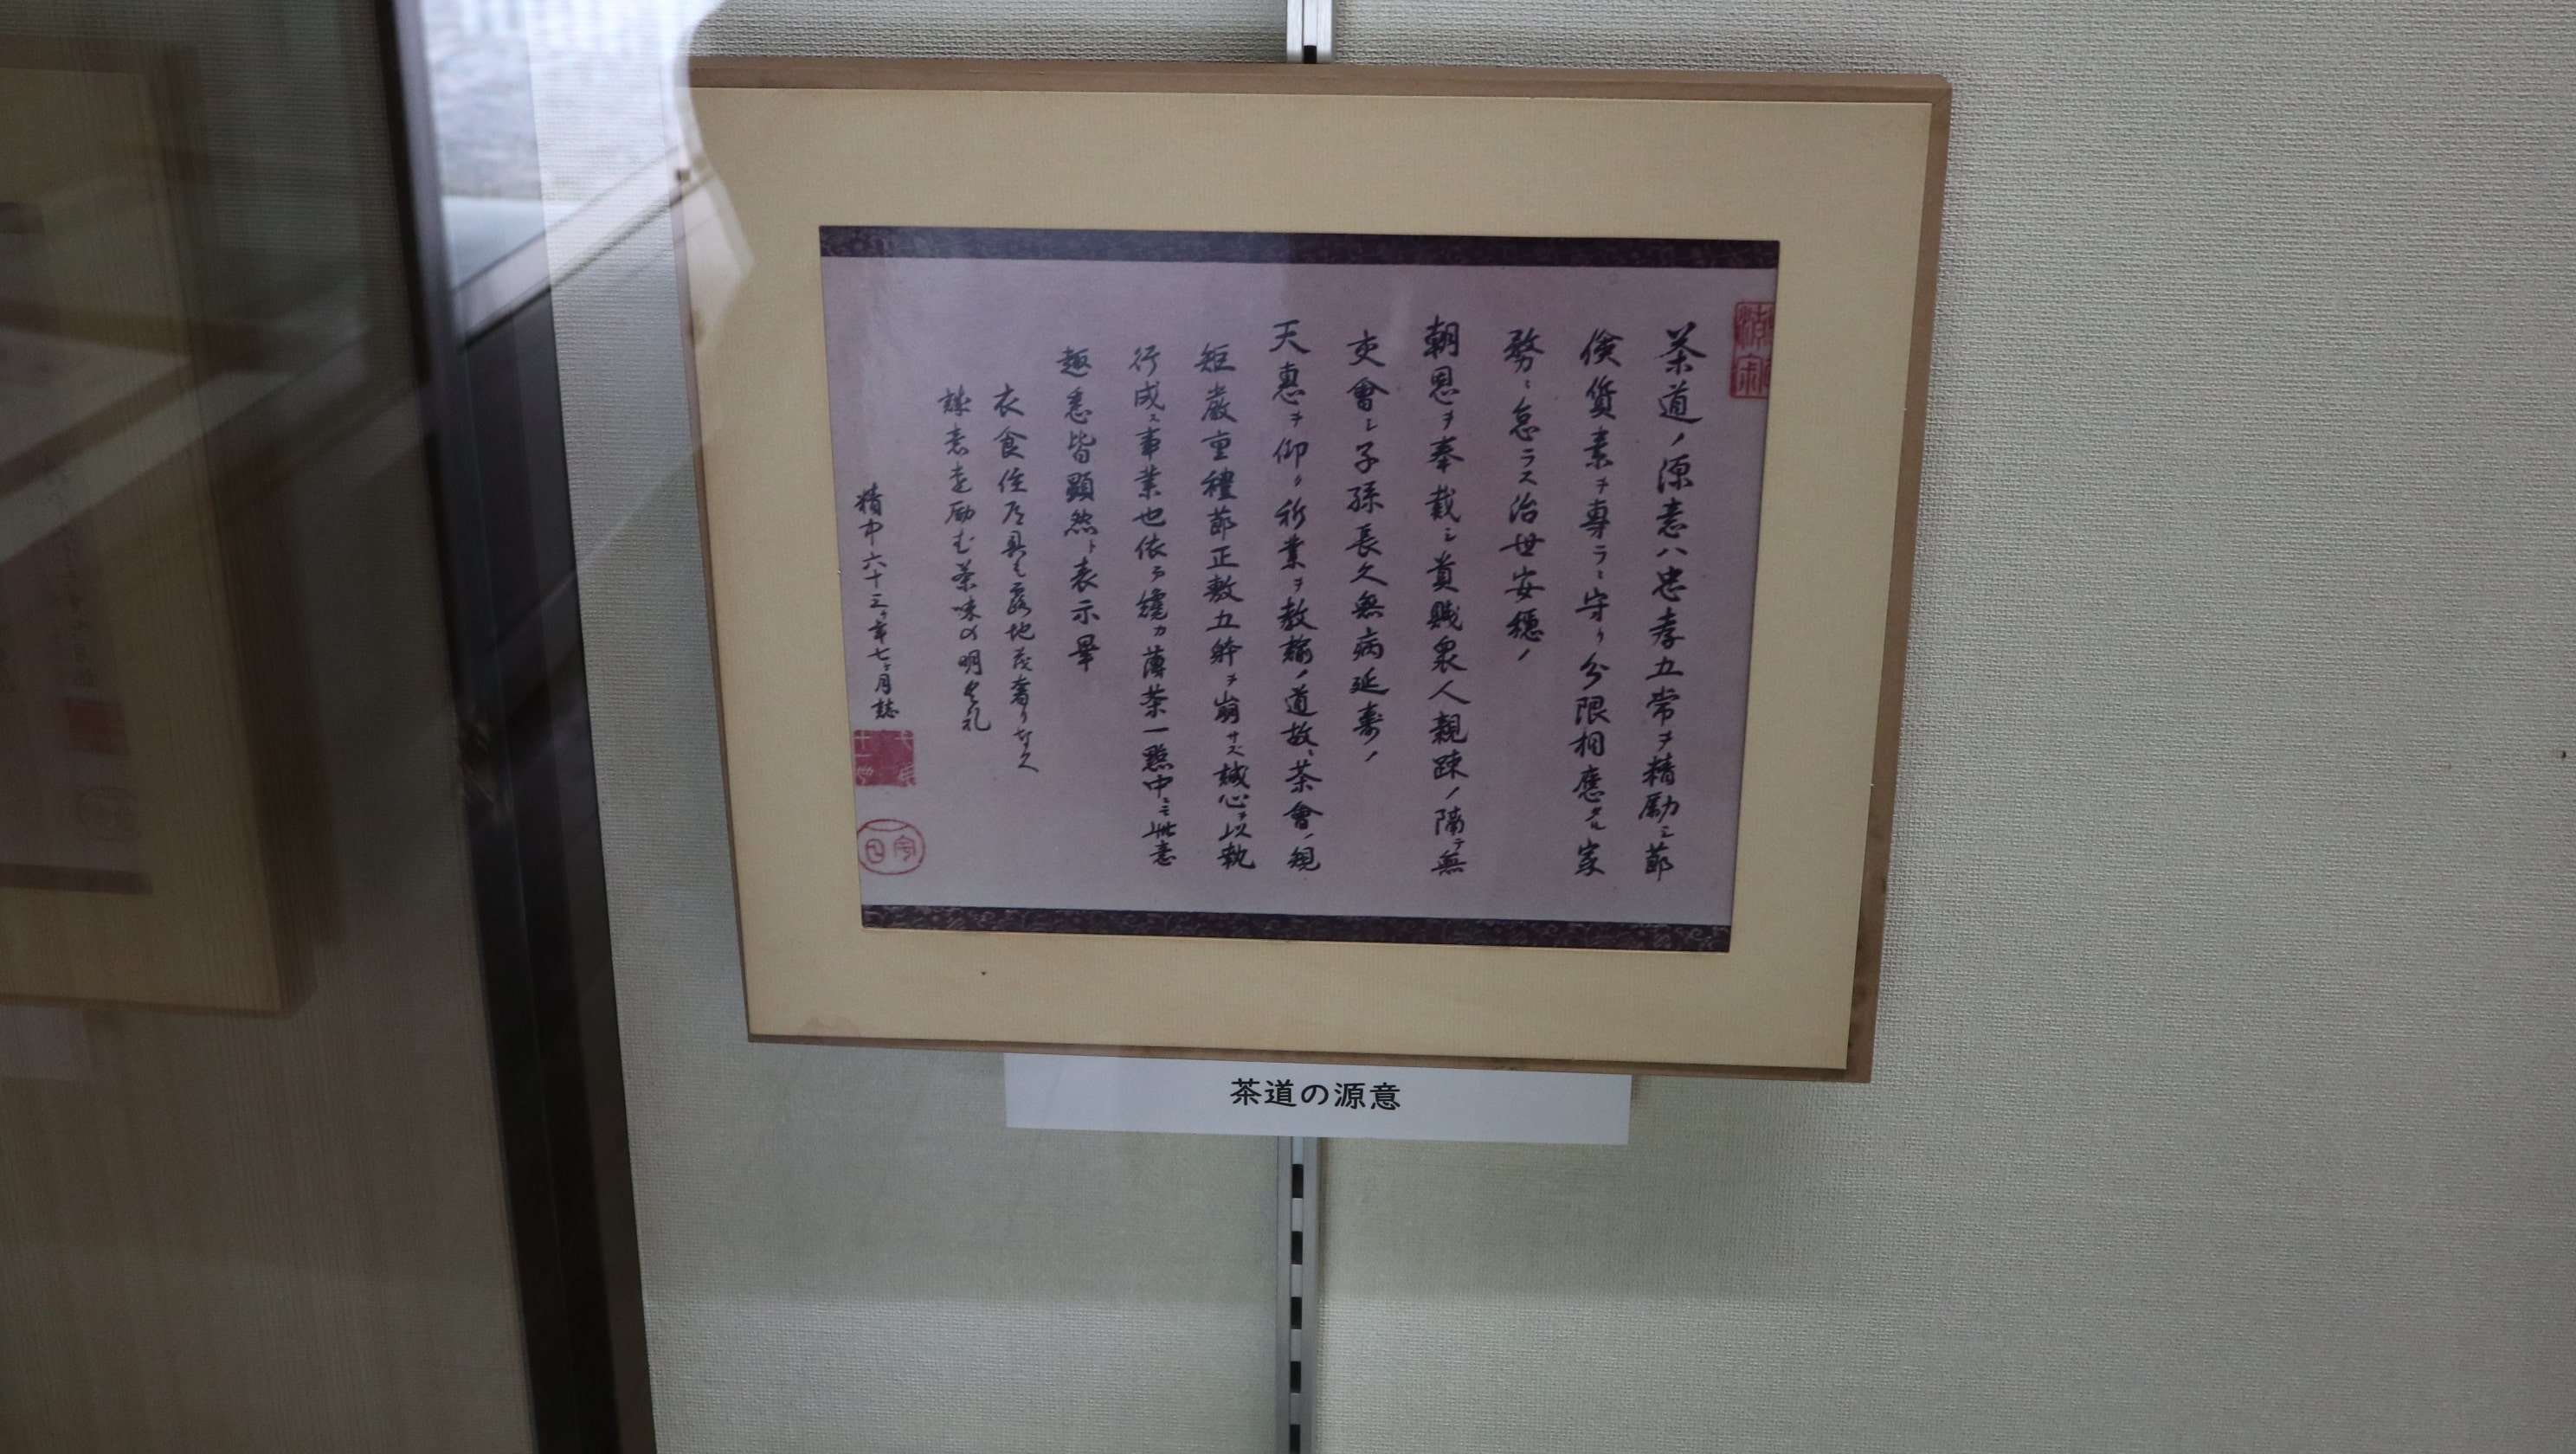 茶道ノ源意ハ忠孝五常ヲ精励シ節
倹質素ヲ専ラニ守リ分限相應タル家
務ニ怠ラス治世安穏ノ
朝恩ヲ奉戴シ貴賎衆人親疎ノ隔テ無
交會シ子孫長久無病延壽ノ
天恵ヲ仰ク所業ヲ教諭ノ道故ニ茶會ノ規
矩嚴重禮節正敷五躰ヲ崩サズ誠心ヲ以執
行成ス事業也依テ纔カ薄茶一點中ニ此意
趣悉皆顕然ト表示畢
衣食住
茶味の明
精中六十三ヶ年七ヶ月誌
茶道の源意